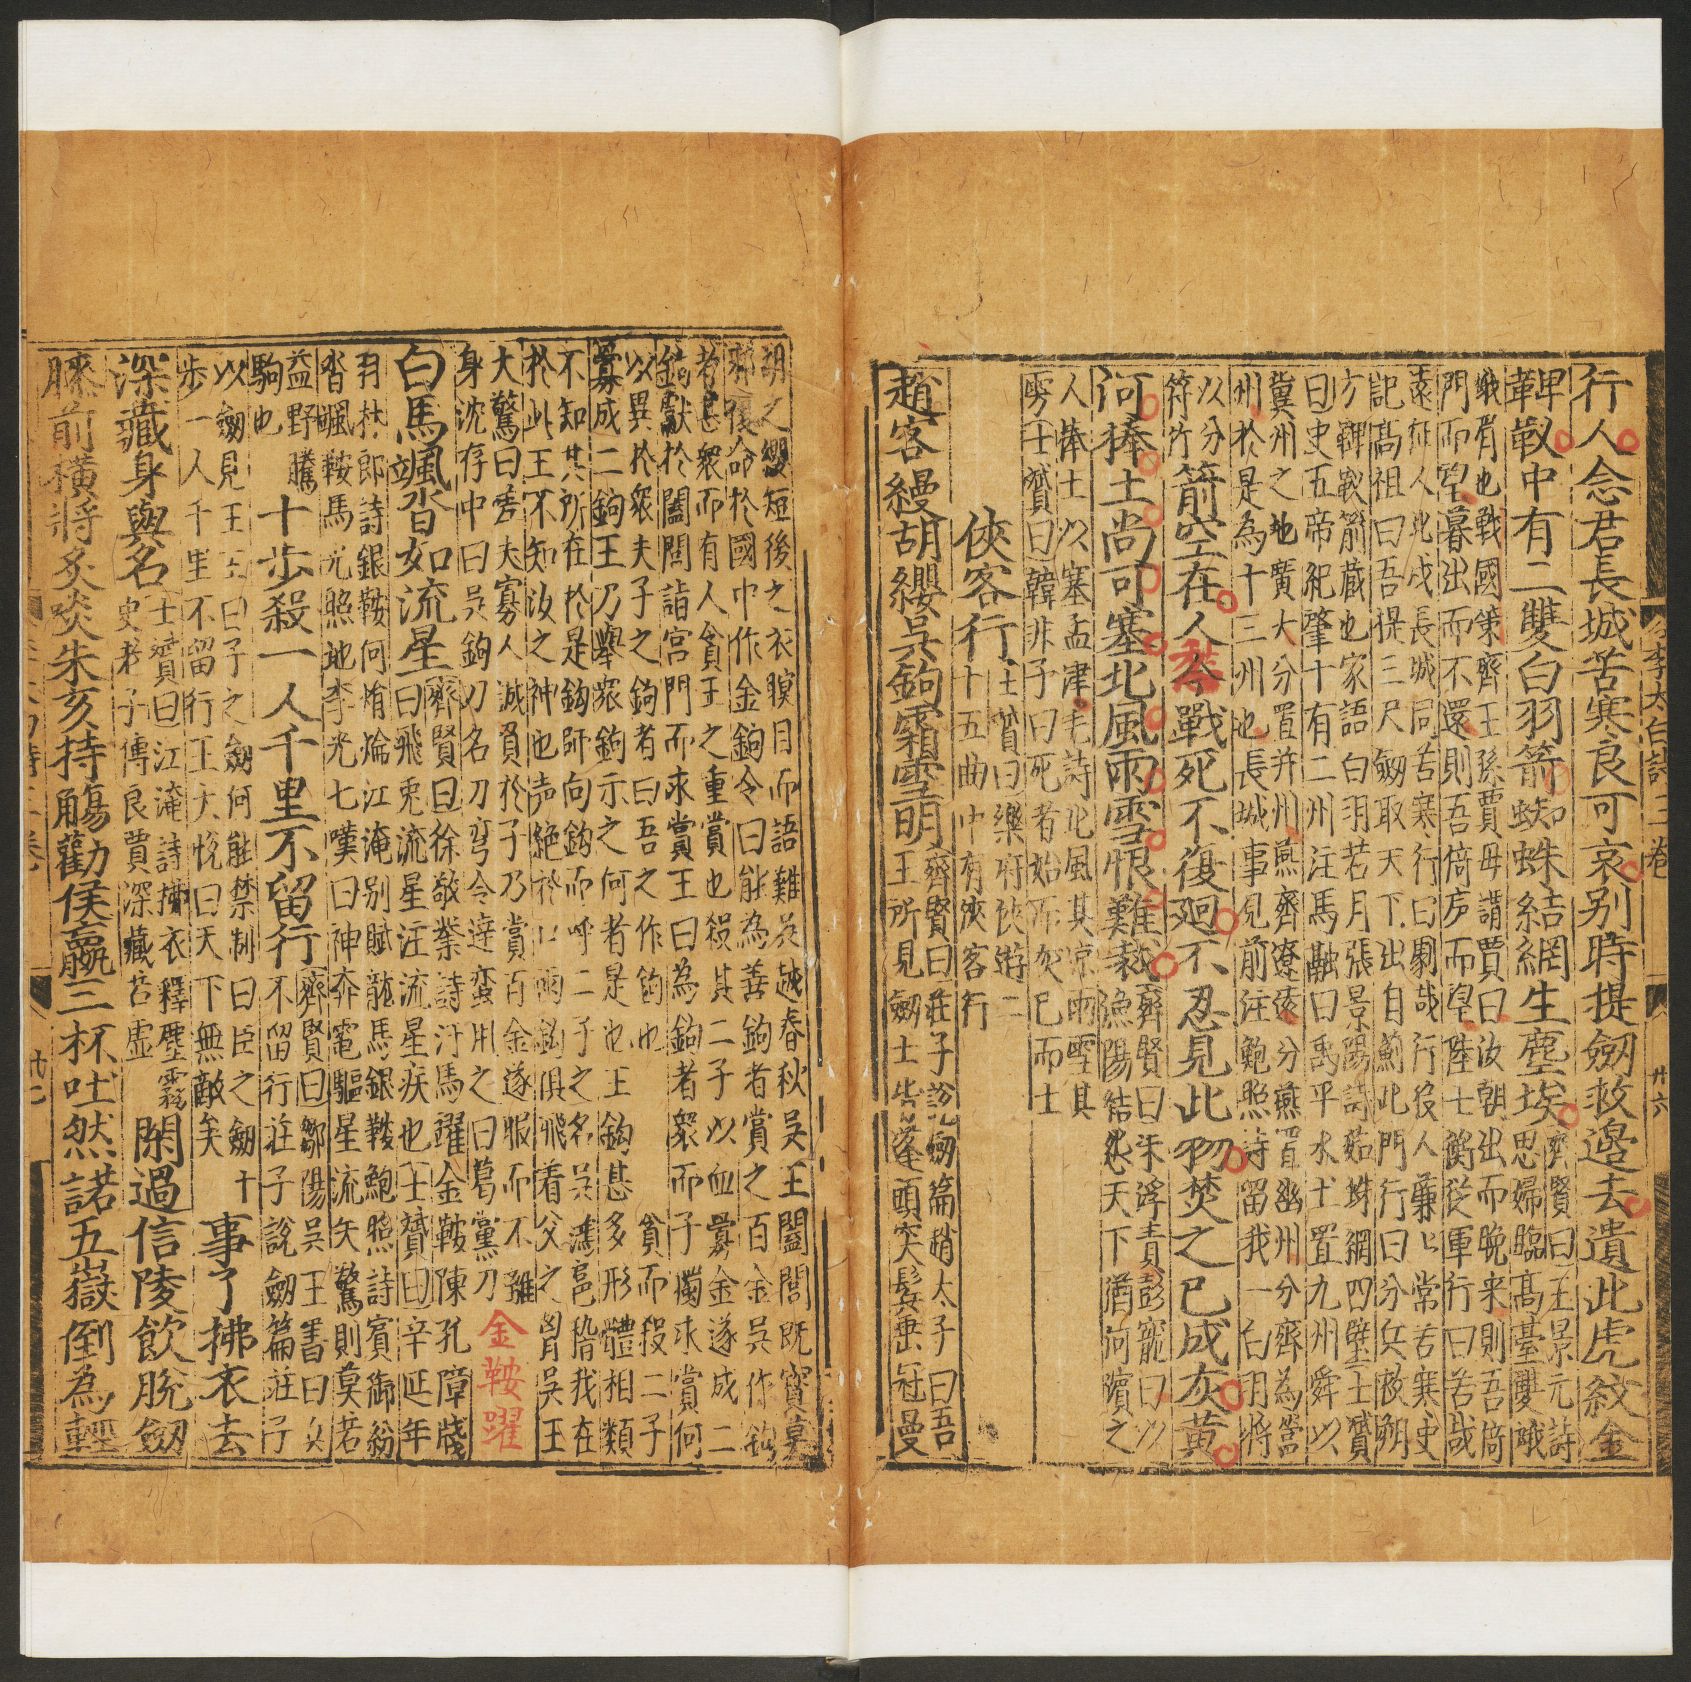 行人念君長城苦寒良可哀别時提劒救邊去遺此虎紋金
鞞靫中有二雙白羽箭蜘蛛結網生塵埃
齊賢曰王景元詩
思婦臨髙臺雙蛾
蛾眉也戰國策齊王孫賈母謂賈曰汝朝出而晚来則吾倚
門而望暮出而不還則吾倚庐而望陸士衡從軍行曰苦哉
遠征人北戍長城同苦寒行曰劇哉行役人慊慊常苦寒史
記髙祖曰吾提三尺劒取天下出自薊北門行曰分兵救朔
方鞞靫箭蔵也家語白羽若月張景陽詩蜘蛛網四壁士贇
曰史五帝紀肇十有二州注馬融曰禹平水土置九州舜以
冀州之地廣大分置并州燕齊遼逺分燕置幽州分齊為營
州於是為十三州也長城事見前注鮑照詩留我一白羽将
以分
符竹
箭空在人今戰死不復廻不忍見此物焚之巳成灰黄
河捧土尚可塞北風雨雪恨難裁
齊賢曰朱浮責彭寵曰以
漁陽結怨天下猶河濱之
人捧土以塞孟津毛詩北風其凉雨雪其
雱士贇曰韓非子曰死者始而灰巳而士
俠客行
士贇曰樂府俠遊二
十五曲中有俠客行
趙客縵胡纓吳鉤霜雪明
齊賢曰莊子說劒篇趙太子曰吾
王所見劒士皆蓬頭突鬂垂冠曼
胡之纓短後之衣瞋目而語難吴越春秋吴王闔閭既寳莫
耶復命於國中作金鉤令曰能為善鉤者賞之百金吴作鉤
者甚衆而有人貪王之重賞也殺其二子以血舋金遂成二
鉤獻於闔閭詣宫門而求賞王曰為鉤者衆而子獨求賞何
以異於衆夫子之鉤者曰吾之作鉤也貪而殺二子
舋成二鉤王乃舉衆鉤示之何者是也王鉤甚多形體相類
不知其所在於是鉤師向鉤而呼二子之名吴鴻扈稽我在
於此王不知汝之神也声絶於口兩鉤俱飛着父之胷吴王
大驚曰嗟夫寡人誠負於子乃賞百金遂服而不離
身沈存中曰吴鉤刀名刀弯今逹蛮用之曰葛黨刀
金鞍躍
白馬颯沓如流星
齊賢曰徐敬業詩汗馬躍金鞍陳孔障牋
曰飛兎流星注流星疾也士贇曰辛延年
羽林郎詩銀鞍何煒爚江淹别賦龍馬銀鞍鮑照詩賓御紛
沓颯鞍馬光照地李尤七嘆曰神奔電驅星流矢驚則莫若
益野騰
駒也
十歩殺一人千里不留行
齊賢曰鄒陽吴王書曰以
不留行莊子說劒篇莊子
以劒見王王曰子之劒何能禁制曰臣之劒十
歩一人千里不留行王大悦曰天下無敵矣
事了拂衣去
深蔵身與名
士贇曰江淹詩拂衣釋塵霧
史老子傳良賈深蔵若虚
閑過信陵飲脫劒
膝前横将炙啖朱亥持觴勸侯嬴三杯吐然諾五嶽倒為輕
李太白詩三巻
廿六